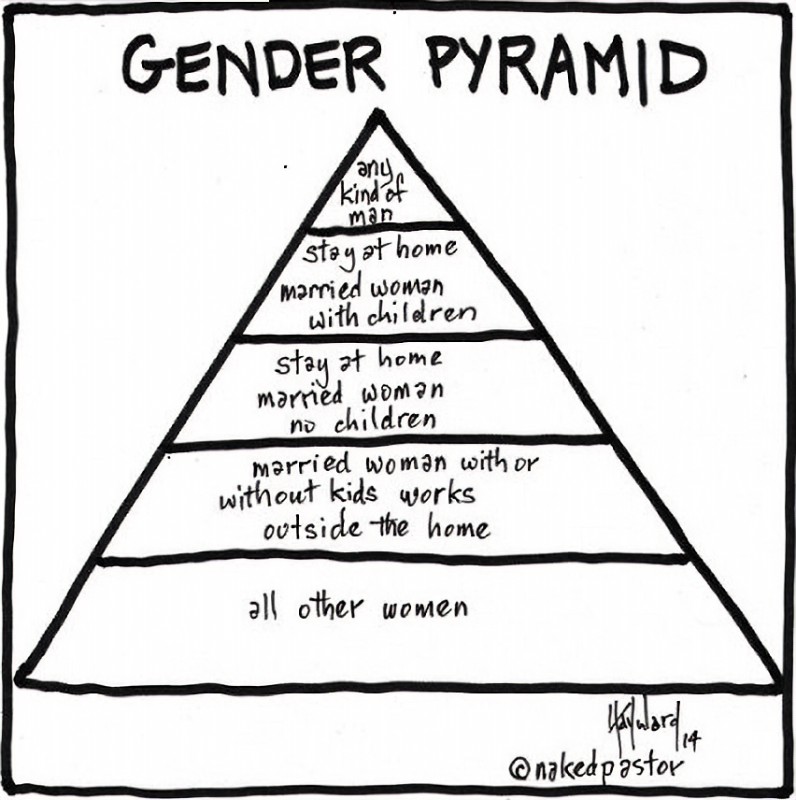 GENDER PYRAMID
any
kind of
man
stay at home
married woman
with children
stay at home
married woman
no children
married woman with or
without kids works
outside the home
all other women
Hayward 14
©nakedpastor